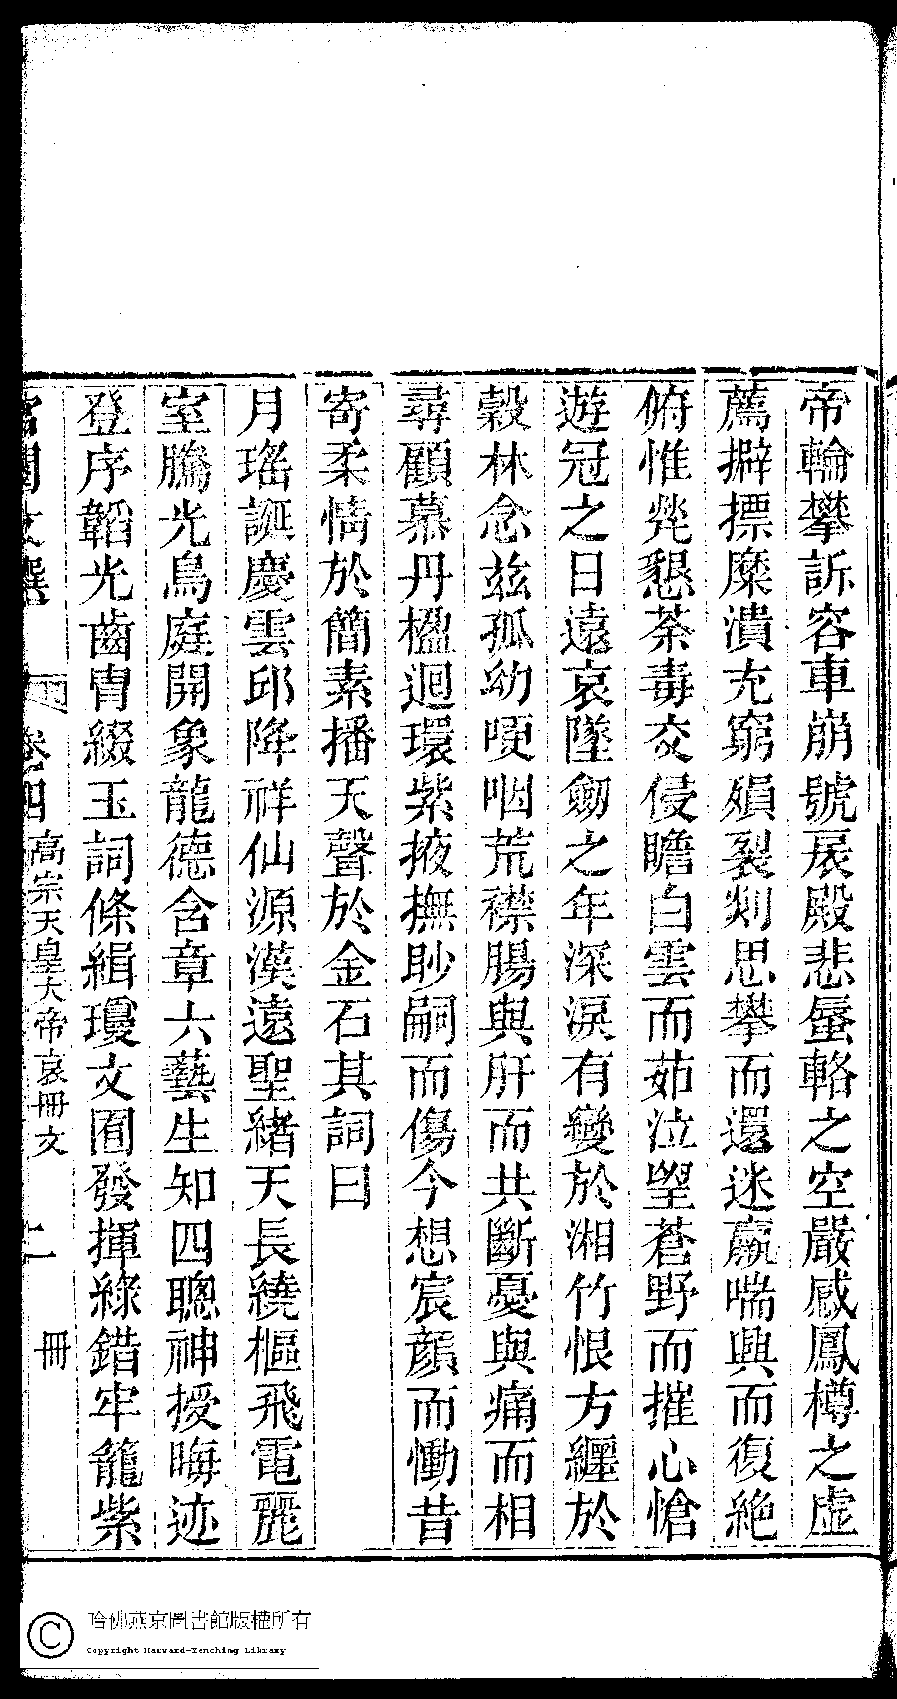 帝輪攀訴容車崩號扆殿悲蜃輅之空嚴感鳳樽之虛
薦擗摽糜潰充窮殞裂剡思攀而還迷羸喘興而復絶
俯惟煢懇荼毒交侵瞻白雲而茹泣望蒼野而摧心愴
遊冠之日遠哀墜劒之年深淚有變於湘竹恨方纒於
穀林念玆孤幼哽咽荒襟腸與肝而共斷憂與痛而相
尋顧慕丹楹迴環紫掖撫眇嗣而傷今想宸顏而慟昔
寄柔情於簡素播天聲於金石其詞曰
月瑤誕慶雲邱降祥仙源漢遠聖緖天長繞樞飛電麗
室騰光鳥庭開象龍德含章六藝生知四聰神授晦迹
登序韜光齒胄綴玉詞條緝瓊文囿發揮綠錯牢籠紫
宮閨文選 卷四 高宗天皇大帝哀册文 二 冊
哈佛燕京圖書館版權所有
Copyright Harvard-Yenching Library